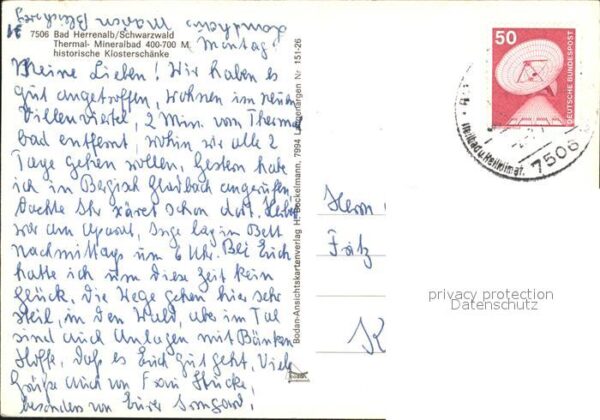 Landhaus Marion Bleichweg 31
7506 Bad Herrenalb/Schwarzwald
Thermal- Mineralbad 400-700 M
historische Klosterschänke
Montag
Meine Lieben! Wir haben es
gut angetroffen, wohnen im neuen
Villenviertel, 2 Min. vom Thermal
bad entfernt, wohin wir alle 2
Tage gehen wollen. Gestern habe
ich in Bergisch Gladbach angerufen
Dachte Ihr wäret schon dort.
war am Apparat, Inge lag im Bett
nachmittags um 6 Uhr. Bei Euch
hatte ich um diese Zeit kein
Glück. Die Wege gehen hier sehr
steil, in den Wald, aber im Tal
sind auch Anlagen mit Bänken
Hoffe, daß es Euch gut geht. Viele
Grüße auch von Frau Stücke,
besonders von Eurer Irmgard.
Bodan-Ansichtskartenverlag H. Bockelmann, 7994 Langenargen Nr 151-26
50
DEUTSCHE BUNDESPOST
Heilbad u. Heilklimat.
7506
Herrn
Fritz
K
privacy protection
Datenschutz